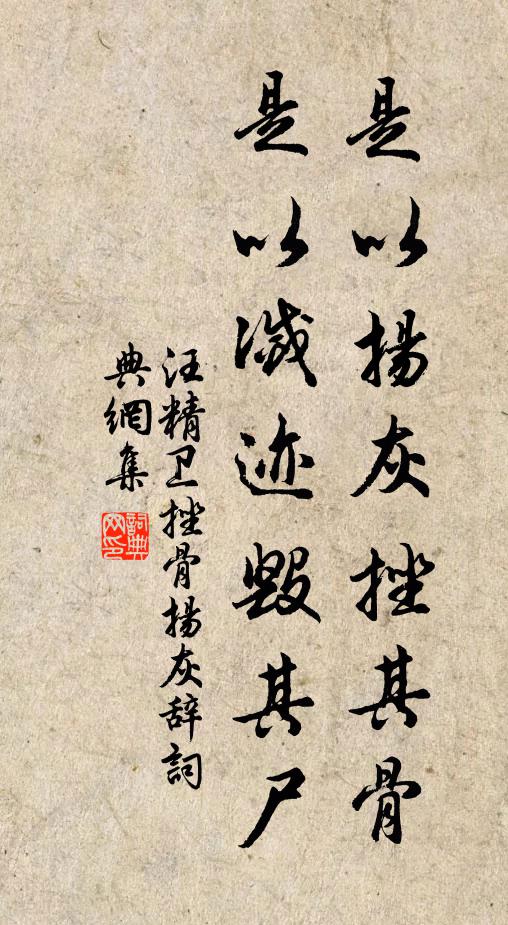 是以揚灰挫其骨
是以滅迹毀其尸
汪精卫挫骨揚灰辞詞
典網集
詞典
网印